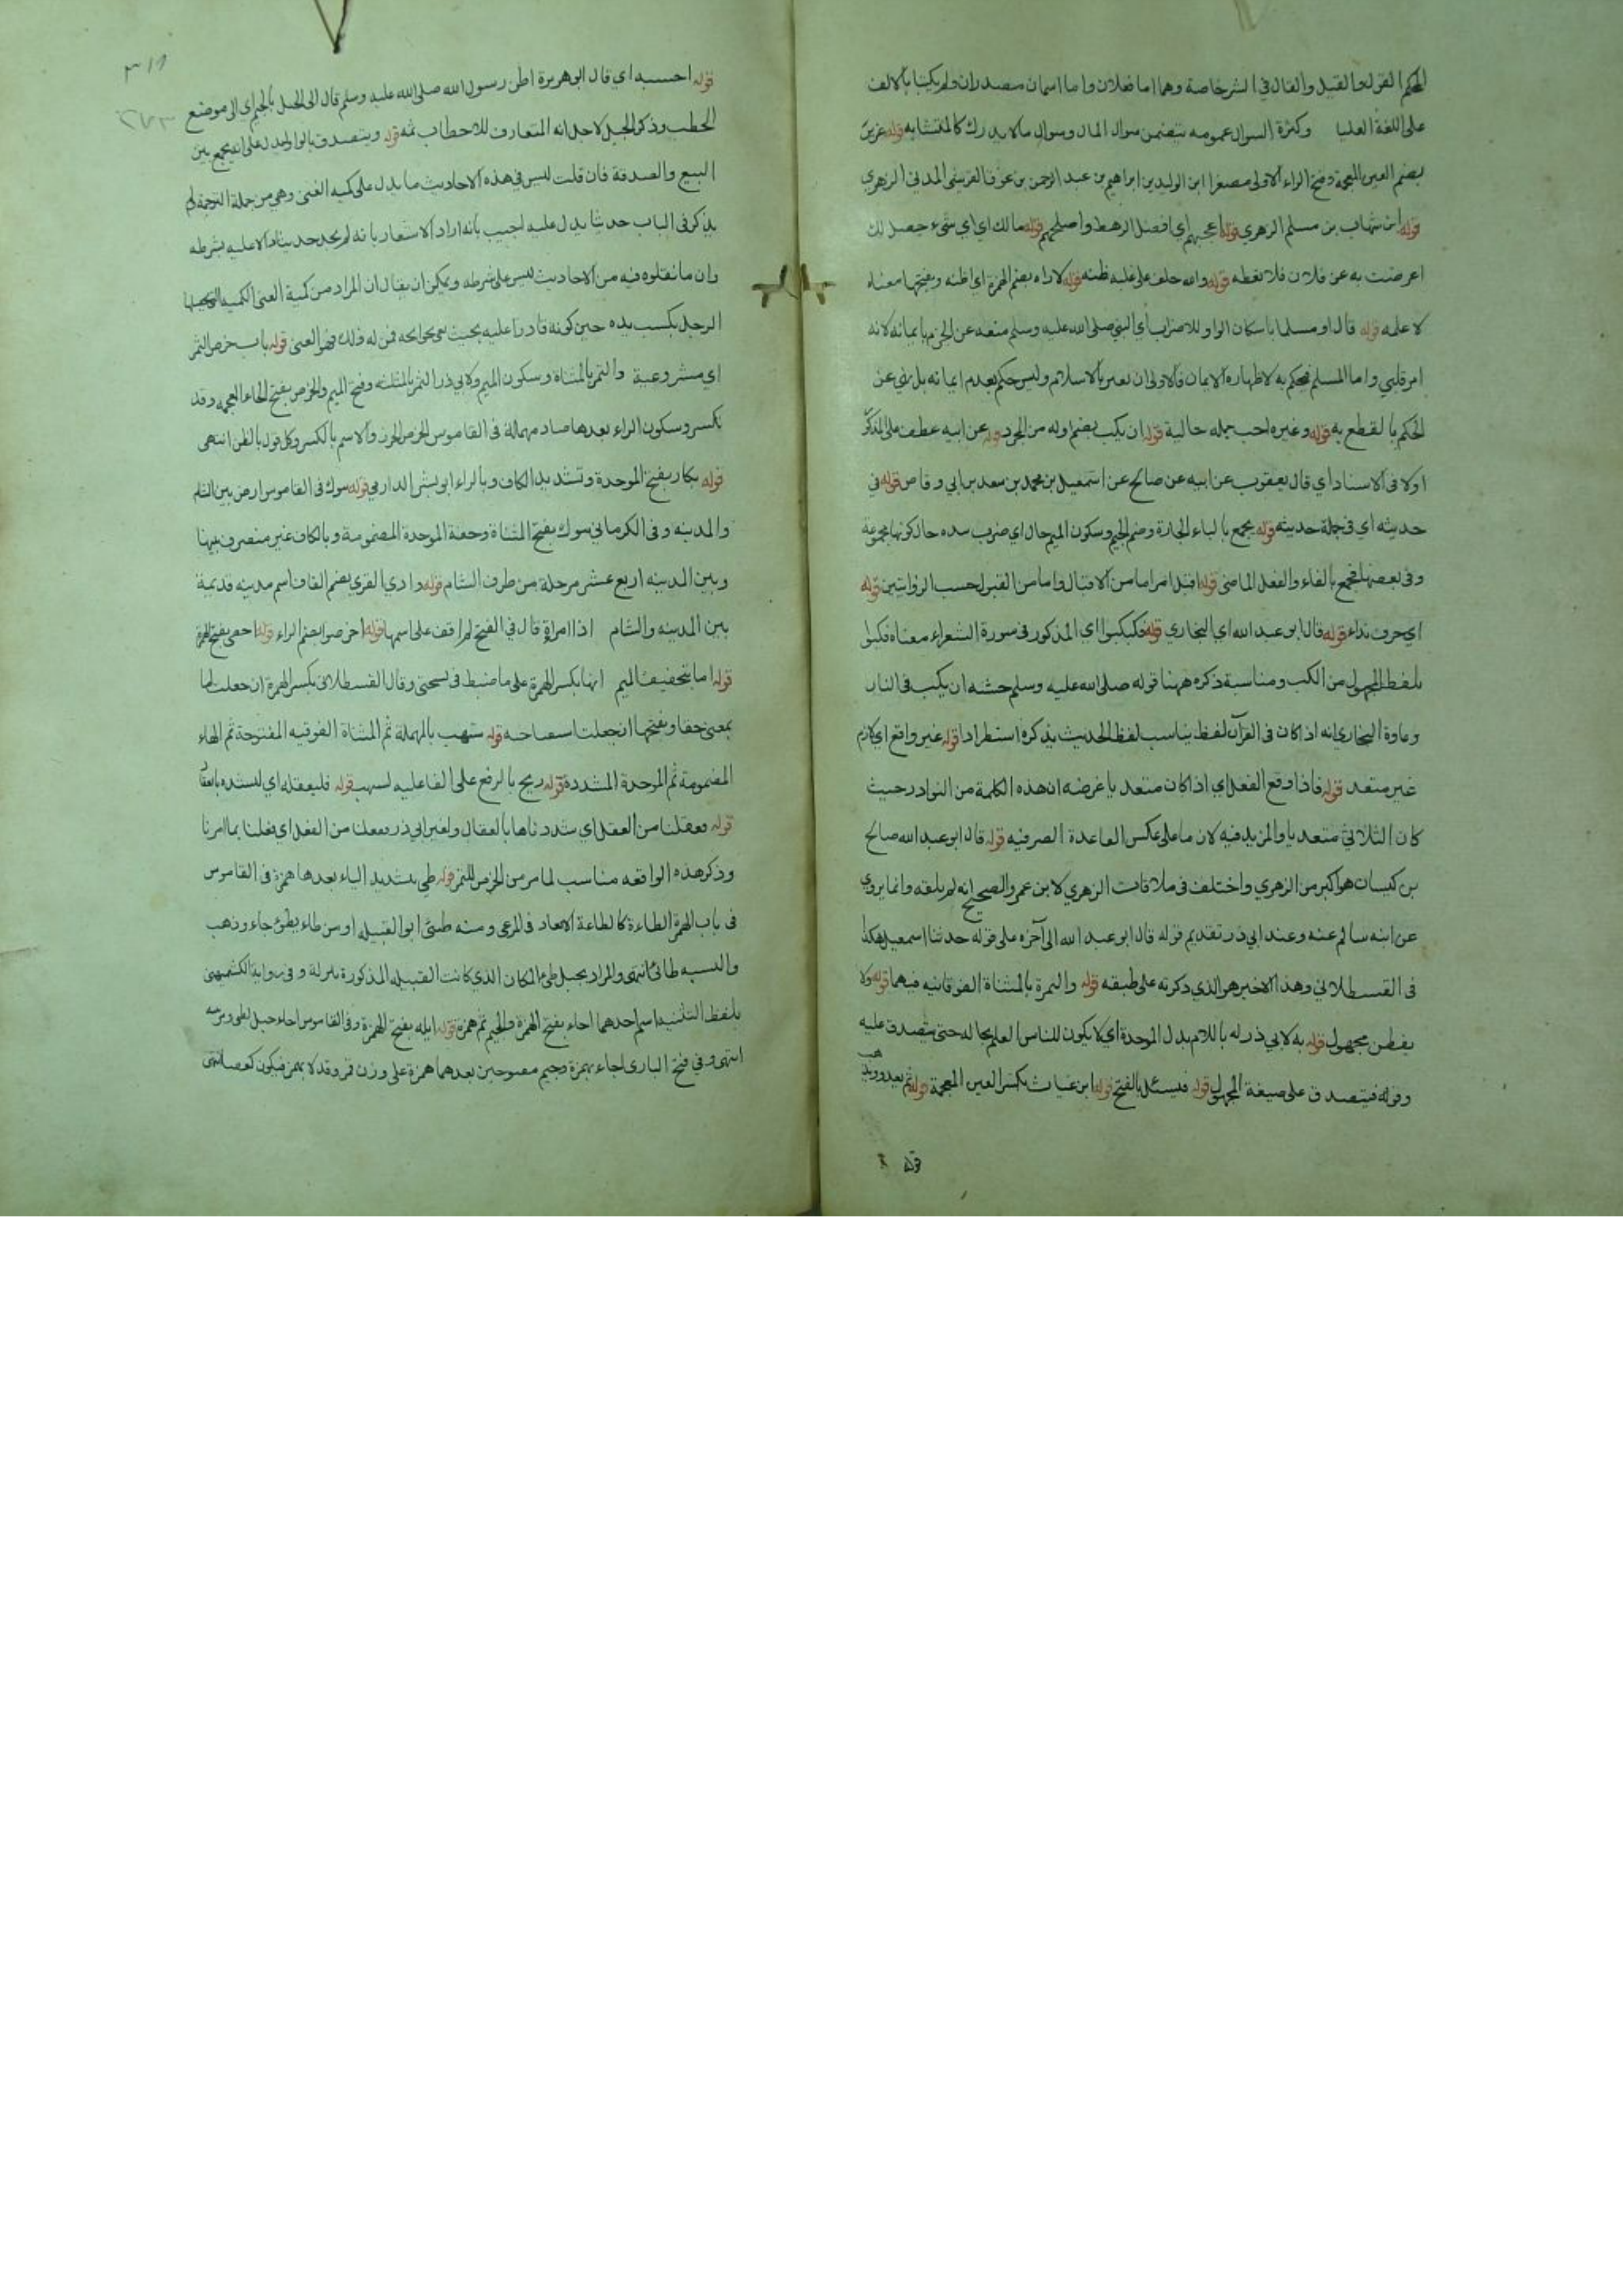 المحكم القول والقيل والقال في الشر خاصة وهما اما فعلان واما اسمان مصدران ولم يكتبا بالالف
على اللغة العليا وكثرة السوال عمومه يتضمن سوال المال وسوال مالا يدرك كالمتشابه قوله غرير
بضم الغين المعجمة وفتح الراء الاولى مصغرا ابن الوليد بن ابراهيم بن عبد الرحمن بن عوف القرشي المدني الزهري
قوله ابن شهاب بن مسلم الزهري قوله اعجبهم اي افضل الرهط واصلحهم قوله مالك اي اي شيء حصل لك
اعرضت به عن فلان فلا تعطه قوله والله حلف على غلبة ظنه قوله لاراه بضم الهمزة اي اظنه وبفتحها معناه
لا علمه قوله قال او مسلما باسكان الواو للاضراب اي النبي صلى الله عليه وسلم منعه عن الجزم بايمانه لانه
امر قلبي واما المسلم فيحكم به لاظهاره الايمان فالاولى ان يعبر بالاسلام وليس حكم بعدم ايمانه بل نهي عن
الحكم بالقطع به قوله وغيره احب جمله حالية قوله ان يكب بضم اوله من المجرد قوله عن ابيه عطف على المذكور
اولا في الاسناد اي قال يعقوب عن ابيه عن صالح عن اسمعيل بن محمد بن سعد بن ابي وقاص قوله في
حديثه اي في جملة حديثه قوله بجمع بالباء الجارة وضم الجيم وسكون الميم حال اي ضرب بيده حال كونها مجموعة
وفي بعضها فجمع بالفاء والفعل الماضي قوله اقبل امر اما من الاقبال واما من القبول بحسب الروايتين قوله
اي حرف نداء قوله قال ابو عبد الله اي البخاري قوله فكبكبوا اي المذكور في سورة الشعراء معناه فكبوا
بلفظ المجهول من الكب ومناسبة ذكره ههنا قوله صلى الله عليه وسلم خشية ان يكب في النار
وعادة البخاري انه اذا كان في القرآن لفظ يناسب لفظ الحديث يذكره استطرادا قوله غير واقع اي لازم
غير متعد قوله فاذا وقع الفعل اي اذا كان متعديا غرضه ان هذه الكلمة من النوادر حيث
كان الثلاثي متعديا والمزيد فيه لازما على عكس القاعدة الصرفيه قوله قال ابو عبد الله صالح
بن كيسان هو اكبر من الزهري واختلف في ملاقات الزهري لابن عمر والصحيح انه لم يلقه وانما يروي
عن ابنه سالم عنه وعند ابي ذر تقديم قوله قال ابو عبد الله الى آخره على قوله حدثنا اسمعيل هكذا
في القسطلاني وهذا الاخير هو الذي ذكرته على طبقه قوله والتمرة بالمثناة الفوقانيه فيهما قوله ولا
يفطن مجهول قوله به لابي ذر له باللام بدل الموحدة اي لا يكون للناس العلم بحاله حتى يتصدق عليه
وقوله فيتصدق على صيغة المجهول قوله فيسئل بالفتح قوله ابن غياث بكسر الغين المعجمة قوله ثم يغدو ويذ
هب
قوله
٣١١
قوله احسبه اي قال ابو هريرة اظن رسول الله صلى الله عليه وسلم قال الى الجبل بالجيم اي الى موضع
الحطب وذكر الجبل لاجل انه المتعارف للاحطاب ثمه قوله ويتصدق بالواو ليدل على انه يجمع بين
البيع والصدقة فان قلت ليس في هذه الاحاديث ما يدل على كميه الغنى وهي من جملة الترجمة لم
يذكر في الباب حديثا يدل عليه اجيب بانه اراد الاشعار بانه لم يجد حديثا دالا عليه بشرطه
وان ما نقلوه فيه من الاحاديث ليس على شرطه ويمكن ان يقال ان المراد من كمية الغنى الكمية
الرجل بكسب يده حين كونه قادرا عليه بحيث يفي بحوائجه فمن له ذلك فهو الغني قوله باب خرص التمر
اي مشروعية والتمر بالمثناة وسكون الميم ولابي ذر الثمر بالمثلثه وفتح الميم والخرص بفتح الخاء المعجمه وقد
تكسر وسكون الراء بعدها صاد مهملة في القاموس الخرص الحزر والاسم بالكسر وكل قول بالظن انتهى
قوله بكار بفتح الموحدة وتشديد الكاف وبالراء ابو بشر الدارمي قوله تبوك في القاموس ارض بين الشام
والمدينه وفي الكرماني تبوك بفتح المثناة وخفة الموحدة المضمومة وبالكاف غير منصرف بينها
وبين المدينه اربع عشر مرحلة من طرف الشام قوله وادي القرى بضم القاف اسم مدينه قديمة
بين المدينه والشام اذا امراة قال في الفتح لم اقف على اسمها قوله اخرصوا بضم الراء قوله احصي بفتح الهمزة
قوله اما بتخفيف الميم انها بكسر الهمزة على ما ضبط في نسختي وقال القسطلاني بكسر الهمزة ان جعلت اما
بمعنى حقا وبفتحها ان جعلت استفتاحيه قوله ستهب بالمهملة ثم المثناة الفوقيه المفتوحة ثم الهاء
المضمومة ثم الموحدة المشددة قوله ريح بالرفع على الفاعليه لستهب قوله فليعقله اي ليشده بالعقال
قوله فعقلنا من العقل اي شددناها بالعقال ولغير ابي ذر ففعلنا من الفعل اي فعلنا بما امرنا
وذكر هذه الواقعه مناسب لما مر من الخرص للتمر قوله طي بتشديد الياء بعدها همزة في القاموس
في باب الهمزة الطاءة كالطاعة الابعاد في المرعى ومنه طيئ ابو القبيله او من طاء يطوئ جاء وذهب
والنسبه طائي انتهى والمراد بجبل طي المكان الذي كانت القبيله المذكورة تنزله وفي رواية الكشميهني
بلفظ التثنيه اسم احدهما اجاء بفتح الهمزة والجيم ثم همزة قوله ايله بفتح الهمزة وفي القاموس اجاء جبل لطي
انتهى وفي فتح الباري اجاء بهمزة وجيم مفتوحتين بعدهما همزة على وزن قمر وقد لا يهمز فيكون كعصا انتهى